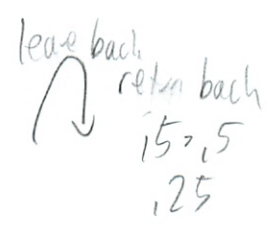 leave back
return back
,5 > ,5
,25